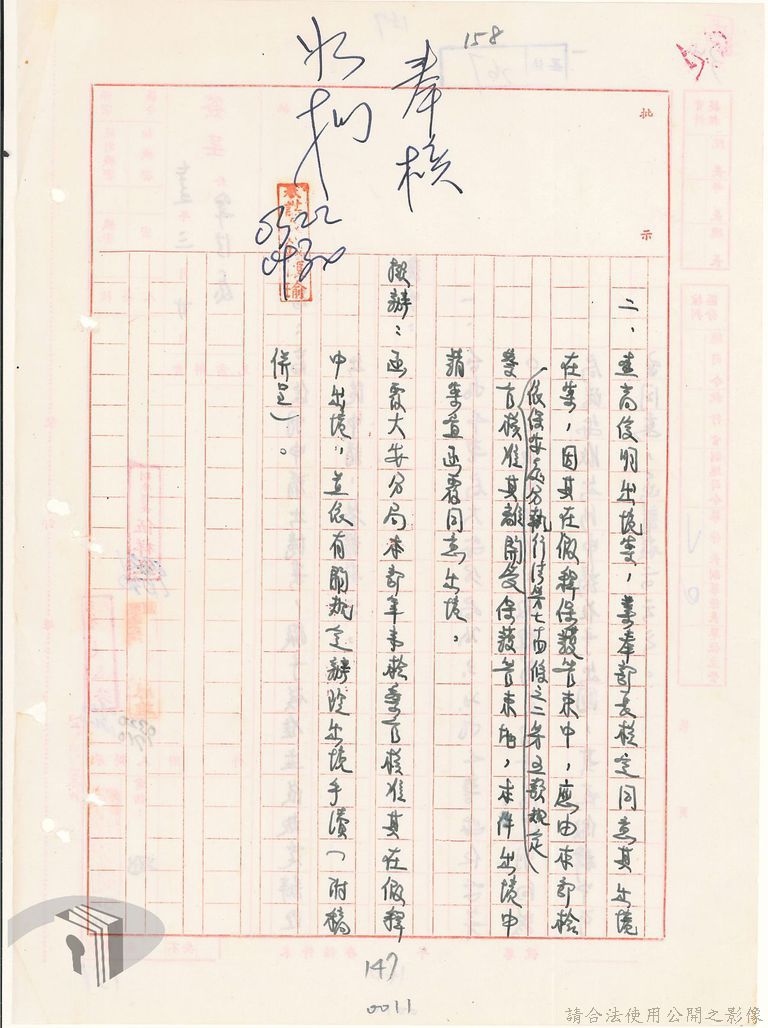 158
奉核
如擬
0322
0430
批示
二、查高俊明出境案,業奉部長核定同意其出境
在案,因其在假釋保護管束中,應由本部檢
(依保安處分執行法第七十四條之二第五款規定)
察官核准其離開受保護管束地,本件出境申
請案宜函覆同意出境。
擬辦:函覆大安分局本部軍事檢察官核准其在假釋
中出境,並依有關規定辦理出境手續(附稿
併呈)。
147
0011
請合法使用公開之影像